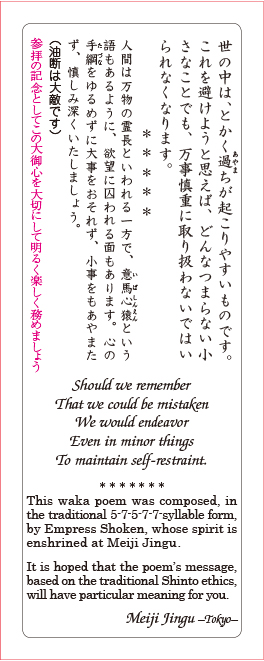 世の中は、とかく過ちが起こりやすいものです。
これを避けようと思えば、どんなつまらない小
さなことでも、万事慎重に取り扱わないではい
られなくなります。
＊＊＊＊＊
人間は万物の霊長といわれる一方で、意馬心猿という
語もあるように、欲望に囚われる面もあります。心の
手綱をゆるめずに大事をおそれず、小事をもあやまた
ず、慎しみ深くいたしましょう。
（油断は大敵です）
参拝の記念としてこの大御心を大切にして明るく楽しく務めましょう
Should we remember
That we could be mistaken
We would endeavor
Even in minor things
To maintain self-restraint.
* * * * * * *
This waka poem was composed, in
the traditional 5-7-5-7-7-syllable form,
by Empress Shoken, whose spirit is
enshrined at Meiji Jingu.
It is hoped that the poem's message,
based on the traditional Shinto ethics,
will have particular meaning for you.
Meiji Jingu –Tokyo–